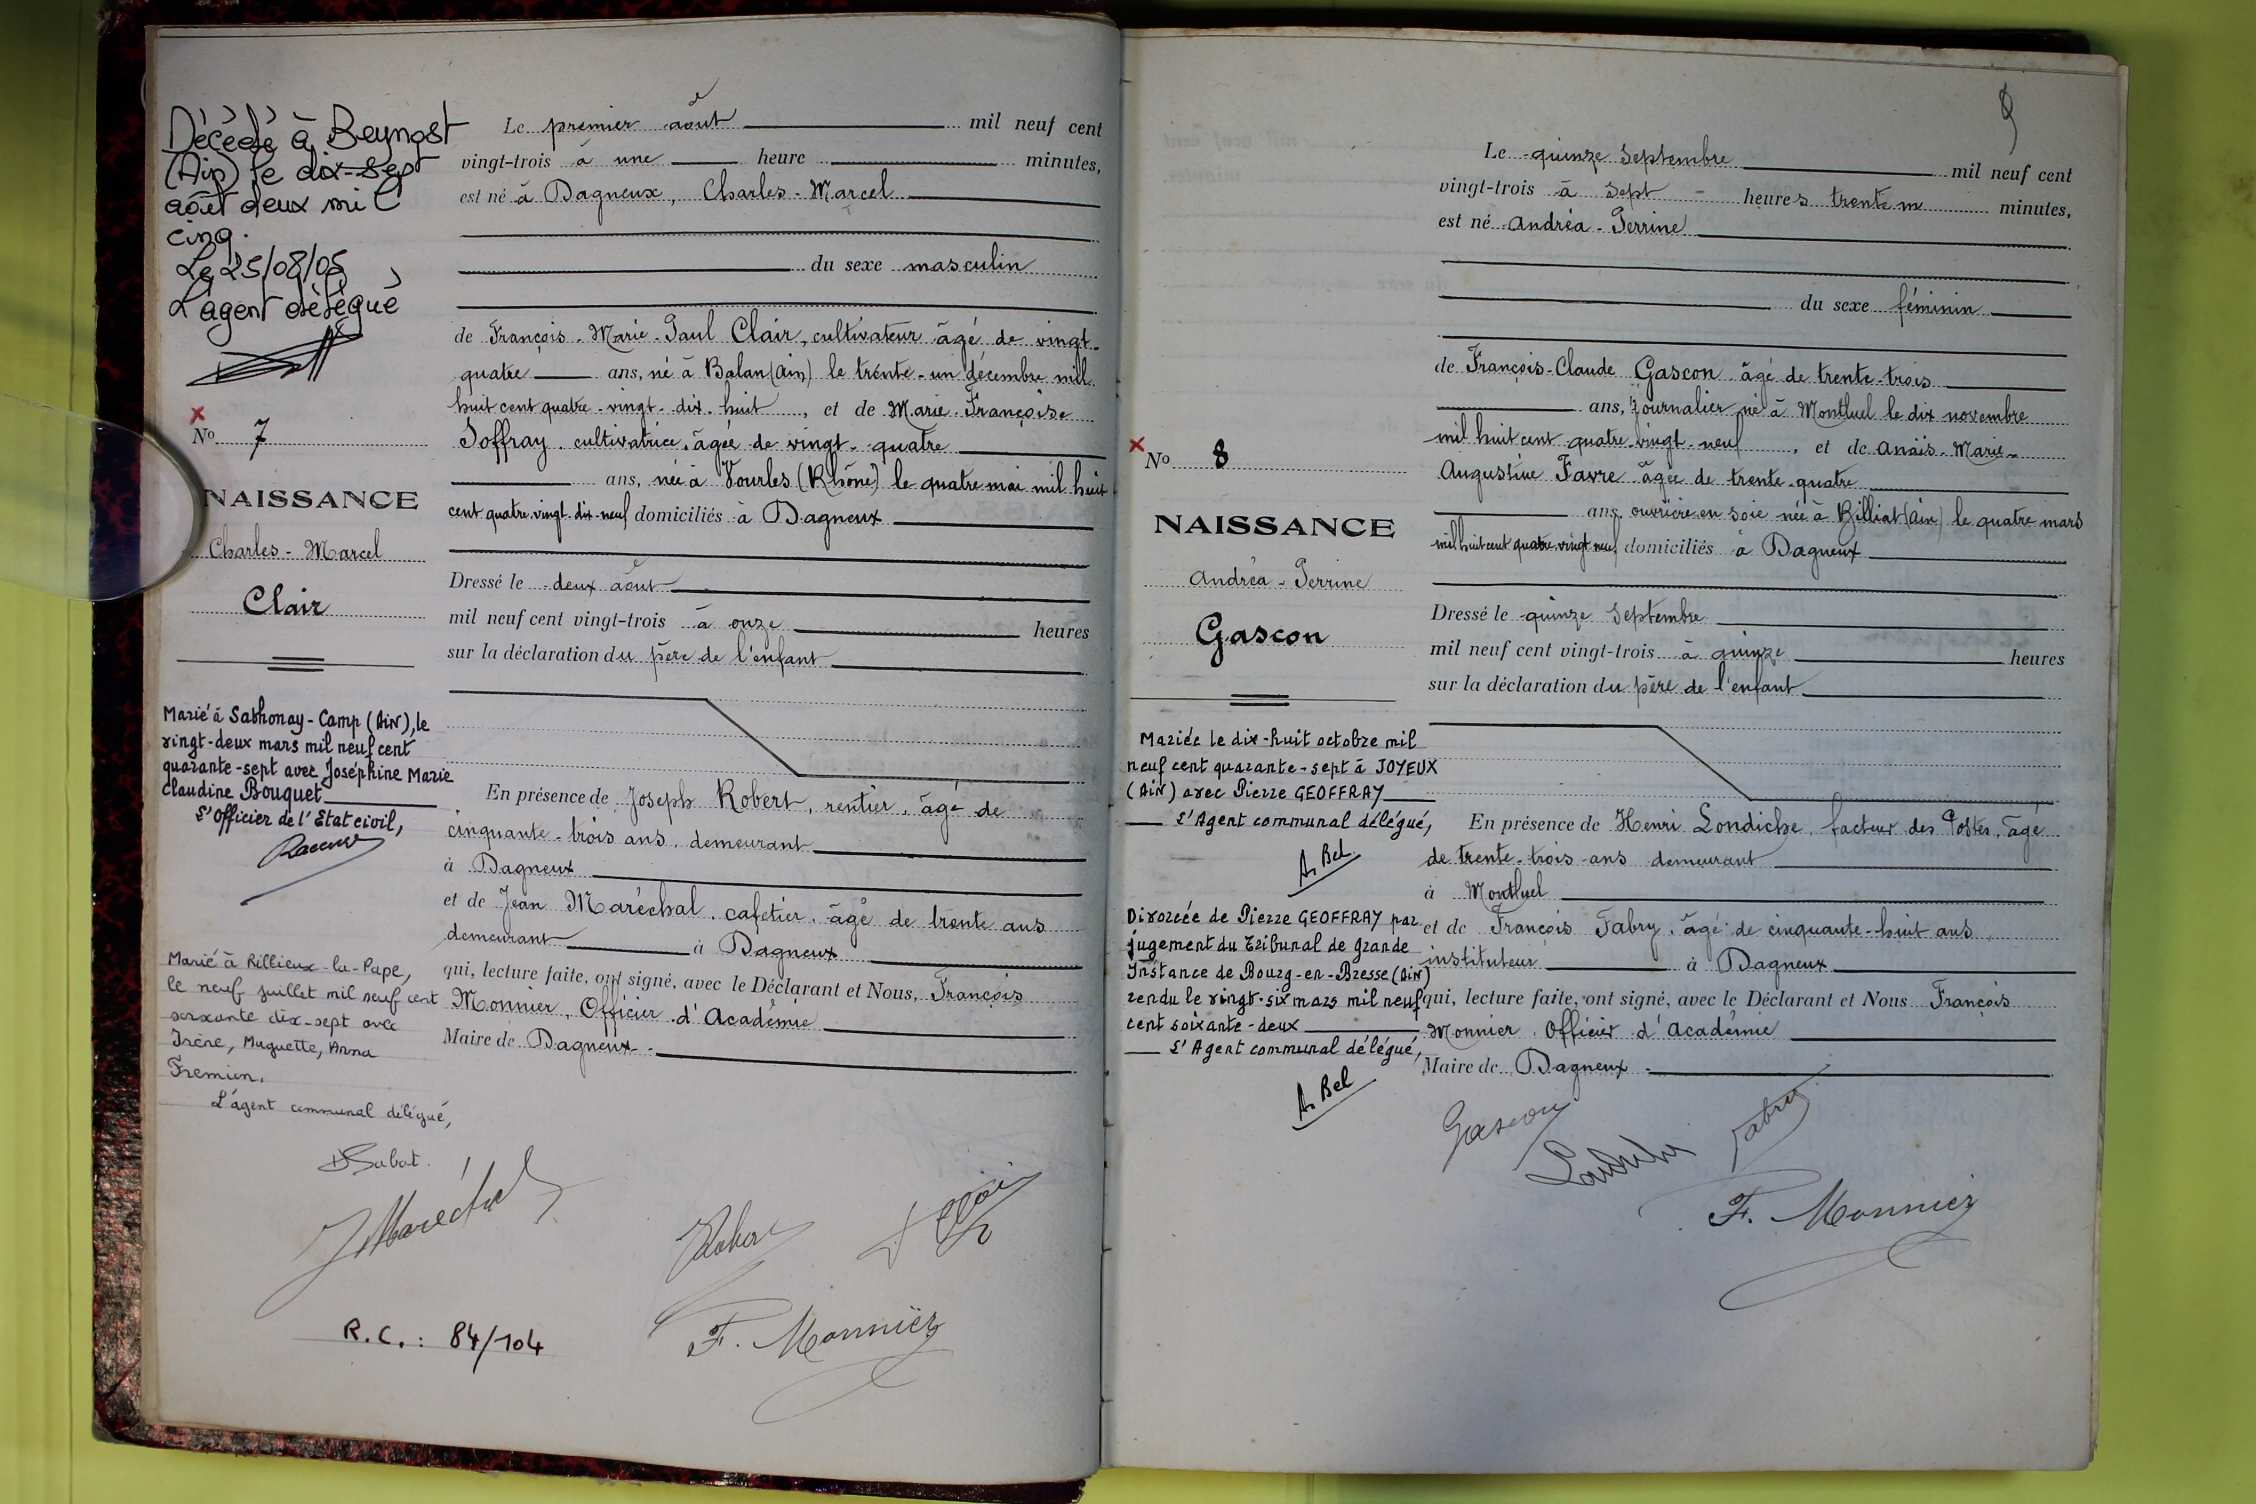 Décédé à Beynost
(Ain) le dix-sept
août deux mil
cinq.
Le 25/08/05
L'agent délégué
No 7
NAISSANCE
Charles - Marcel
Clair
Marié à Sathonay-Camp (AIN), le
vingt-deux mars mil neuf cent
quarante-sept avec Joséphine Marie
Claudine Bouquet
L'Officier de l'Etat civil,
Marié à Rillieux-la-Pape,
le neuf juillet mil neuf cent
soixante dix-sept avec
Irène, Muguette, Anna
Fremion.
L'agent communal délégué,
Le premier août mil neuf cent
vingt-trois à une heure minutes,
est né à Dagneux, Charles - Marcel
du sexe masculin
de François - Marie - Paul Clair, cultivateur âgé de vingt-
quatre ans, né à Balan (Ain) le trente-un décembre mil
huit cent quatre-vingt-dix-huit, et de Marie-Françoise
Joffray, cultivatrice, âgée de vingt-quatre
ans, née à Vourles (Rhône) le quatre mai mil huit
cent quatre-vingt-dix-neuf domiciliés à Dagneux
Dressé le deux août
mil neuf cent vingt-trois à onze heures
sur la déclaration du père de l'enfant
En présence de Joseph Robert, rentier, âgé de
cinquante-trois ans, demeurant
à Dagneux
et de Jean Maréchal, cafetier, âgé de trente ans
demeurant à Dagneux
qui, lecture faite, ont signé, avec le Déclarant et Nous, François
Monnier, Officier d'Académie
Maire de Dagneux
J Maréchal
Robert
F. Monnier
R.C. : 84/104
9
No 8
NAISSANCE
Andréa - Perrine
Gascon
Mariée le dix-huit octobre mil
neuf cent quarante-sept à JOYEUX
(AIN) avec Pierre GEOFFRAY
L'Agent communal délégué,
A. Bel
Divorcée de Pierre GEOFFRAY par
jugement du Tribunal de Grande
Instance de Bourg-en-Bresse (AIN)
rendu le vingt-six mars mil neuf
cent soixante-deux
L'Agent communal délégué,
A. Bel
Le quinze Septembre mil neuf cent
vingt-trois à sept heures trente minutes,
est né Andréa - Perrine
du sexe féminin
de François-Claude Gascon âgé de trente-trois
ans, journalier né à Montluel le dix novembre
mil huit cent quatre-vingt-neuf, et de Anaïs-Marie-
Augustine Favre âgée de trente-quatre
ans, ouvrière en soie née à Billiat (Ain) le quatre mars
mil huit cent quatre-vingt neuf domiciliés à Dagneux
Dressé le quinze Septembre
mil neuf cent vingt-trois à quinze heures
sur la déclaration du père de l'enfant
En présence de Henri Londiche, facteur des Postes, âgé
de trente-trois ans demeurant
à Montluel
et de François Fabry, âgé de cinquante-huit ans
instituteur à Dagneux
qui, lecture faite, ont signé, avec le Déclarant et Nous François
Monnier, Officier d'Académie
Maire de Dagneux
Gascon
Fabry
F. Monnier